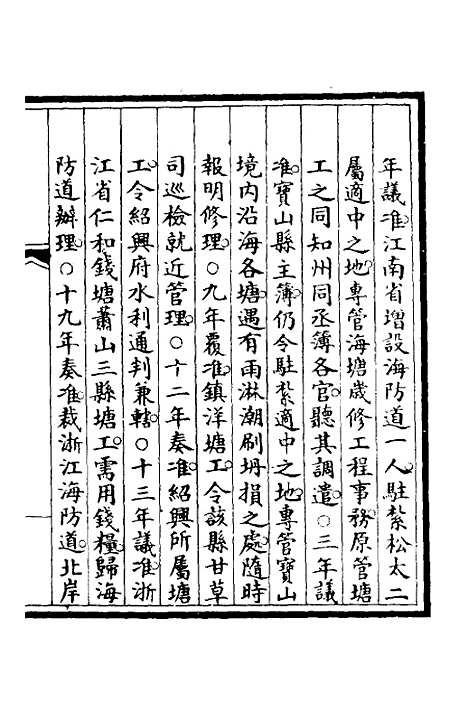 年議准江南省增設海防道一人駐紮松太二
屬適中之地專管海塘歲修工程事務原管塘
工之同知州同丞簿各官聽其調遣○三年議
准寶山縣主簿仍令駐紮適中之地專管寶山
境內沿海各塘遇有雨淋潮刷坍損之處隨時
報明修理○九年覆准鎮洋塘工令該縣甘草
司巡檢就近管理○十二年奏准紹興所屬塘
工令紹興府水利通判兼轄○十三年議准浙
江省仁和錢塘蕭山三縣塘工需用錢糧歸海
防道辦理○十九年奏准裁浙江海防道北岸